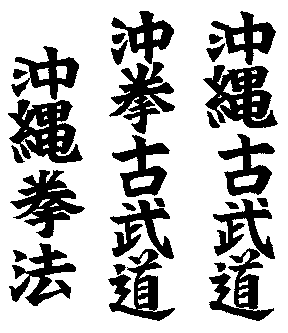 沖縄古武道
沖拳古武道
沖縄拳法